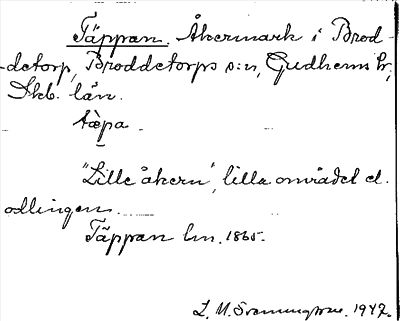 Täppan. Åkermark i Brod-
detorp, Broddetorps s:n, Gudhems hr,
Skb. län.
tæpa
"Lille åkern", lilla området el.
odlingen.
Täppan lm. 1865.
L. M. 1942.